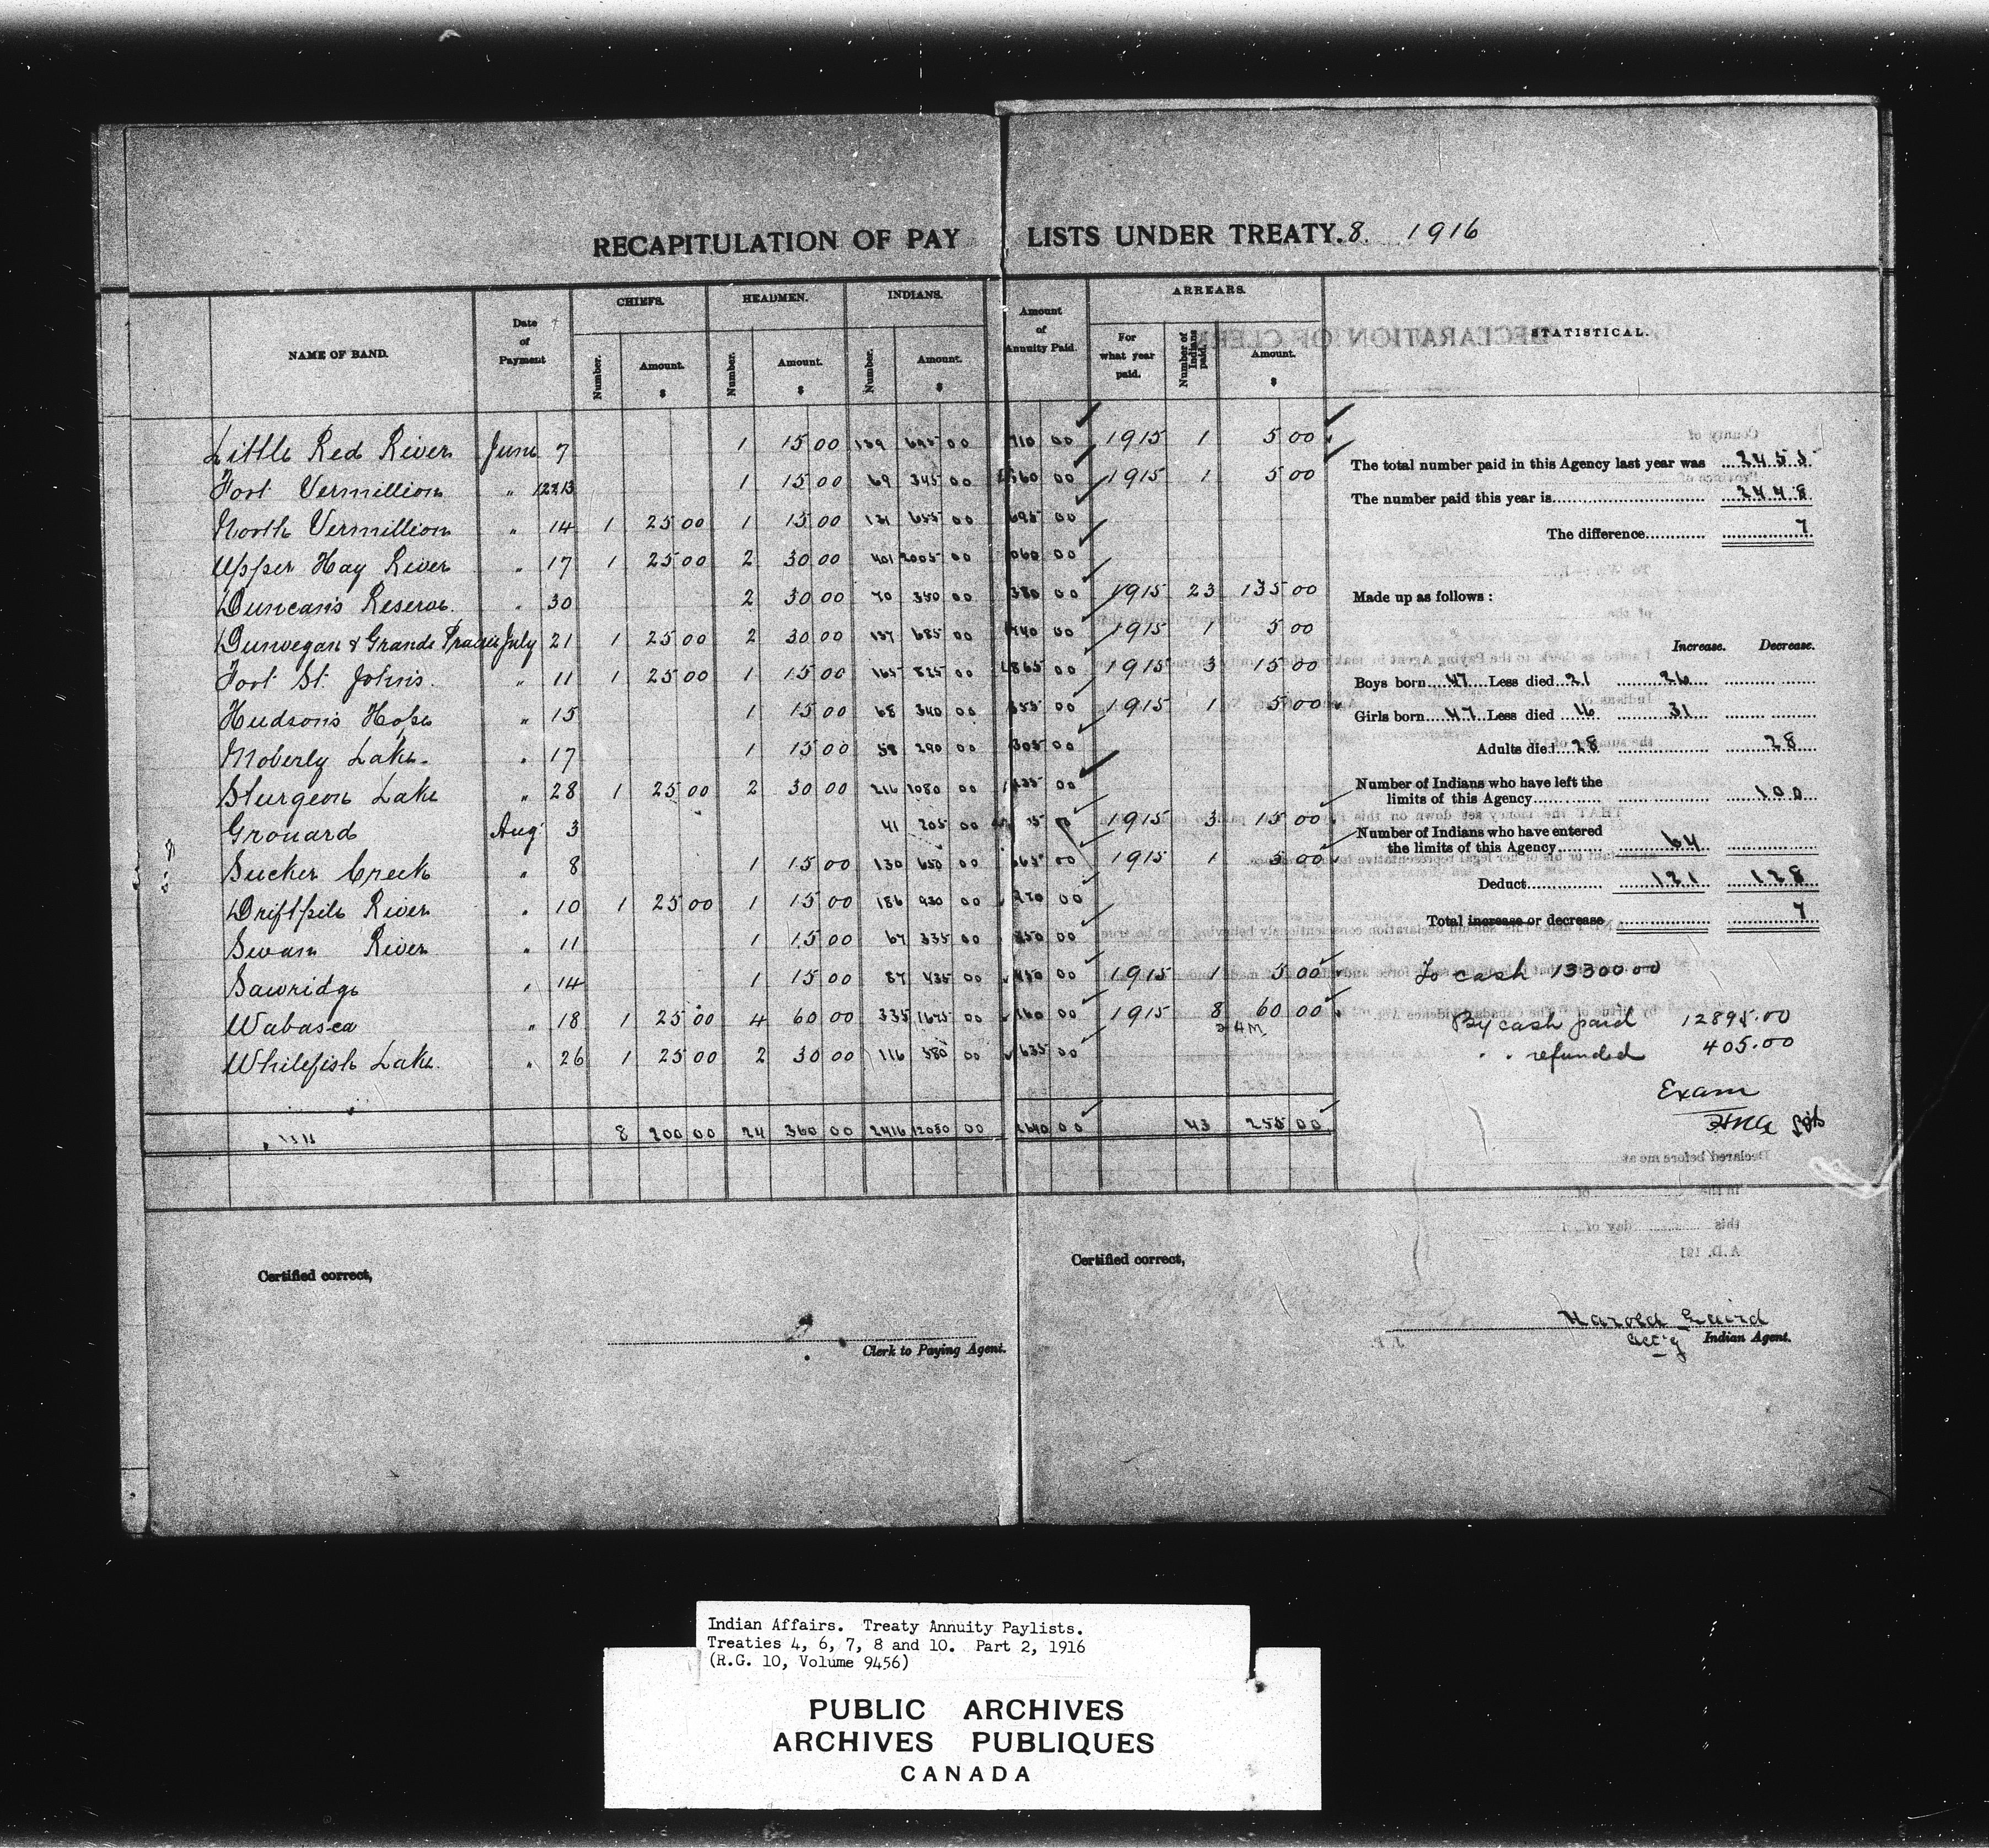 RECAPITULATION OF PAY LISTS UNDER TREATY. 8. 1916
NAME OF BAND. Date of Payment CHIEFS. HEADMEN. INDIANS. Amount of Annuity Paid. ARREARS. STATISTICAL.
Number. Amount. $ Number. Amount. $ Number. Amount. $ For what year paid. Number of Indians paid. Amount. $
Little Red River June 7 1 15 00 139 695 00 710 00 1915 1 5 00
Fort Vermillion " 12&13 1 15 00 69 345 00 360 00 1915 1 5 00
North Vermillion " 14 1 25 00 1 15 00 131 655 00 695 00
Upper Hay River " 17 1 25 00 2 30 00 401 2005 00 060 00
Duncan's Reserve. " 30 2 30 00 70 350 00 380 00 1915 23 135 00
Dunvegan & Grande Prairie July 21 1 25 00 2 30 00 137 685 00 740 00 1915 1 5 00
Fort St. John's. " 11 1 25 00 1 15 00 165 825 00 865 00 1915 3 15 00
Hudson's Hope " 15 1 15 00 68 340 00 355 00 1915 1 5 00
Moberly Lake. " 17 1 15 00 58 290 00 305 00
Sturgeon Lake " 28 1 25 00 2 30 00 216 1080 00 1135 00
Grouard Aug 3 41 205 00 1915 3 15 00
Sucker Creek " 8 1 15 00 130 650 00 665 00 1915 1 5 00
Driftpile River " 10 1 25 00 1 15 00 186 930 00 970 00
Swan River " 11 1 15 00 67 335 00 350 00
Sawridge " 14 1 15 00 87 435 00 450 00 1915 1 5 00
Wabasca " 18 1 25 00 4 60 00 335 1675 00 1760 00 1915 8 60 00
2 HM
Whitefish Lake. " 26 1 25 00 2 30 00 116 580 00 635 00
8 200 00 24 360 00 2416 12080 00 2640 00 43 255 00
The total number paid in this Agency last year was 2455
The number paid this year is 2448
The difference 7
Made up as follows :
Increase. Decrease.
Boys born 47 Less died 21 26
Girls born 47 Less died 16 31
Adults died 28 28
Number of Indians who have left the
limits of this Agency 100
Number of Indians who have entered
the limits of this Agency 64
Deduct 121 128
Total increase or decrease 7
To cash 13300 00
By cash paid 12895.00
" " refunded 405.00
Exam
Certified correct,
Clerk to Paying Agent.
Certified correct,
Harold Laird
Act'g Indian Agent.
Indian Affairs. Treaty Annuity Paylists.
Treaties 4, 6, 7, 8 and 10. Part 2, 1916
(R.G. 10, Volume 9456)
PUBLIC ARCHIVES
ARCHIVES PUBLIQUES
CANADA